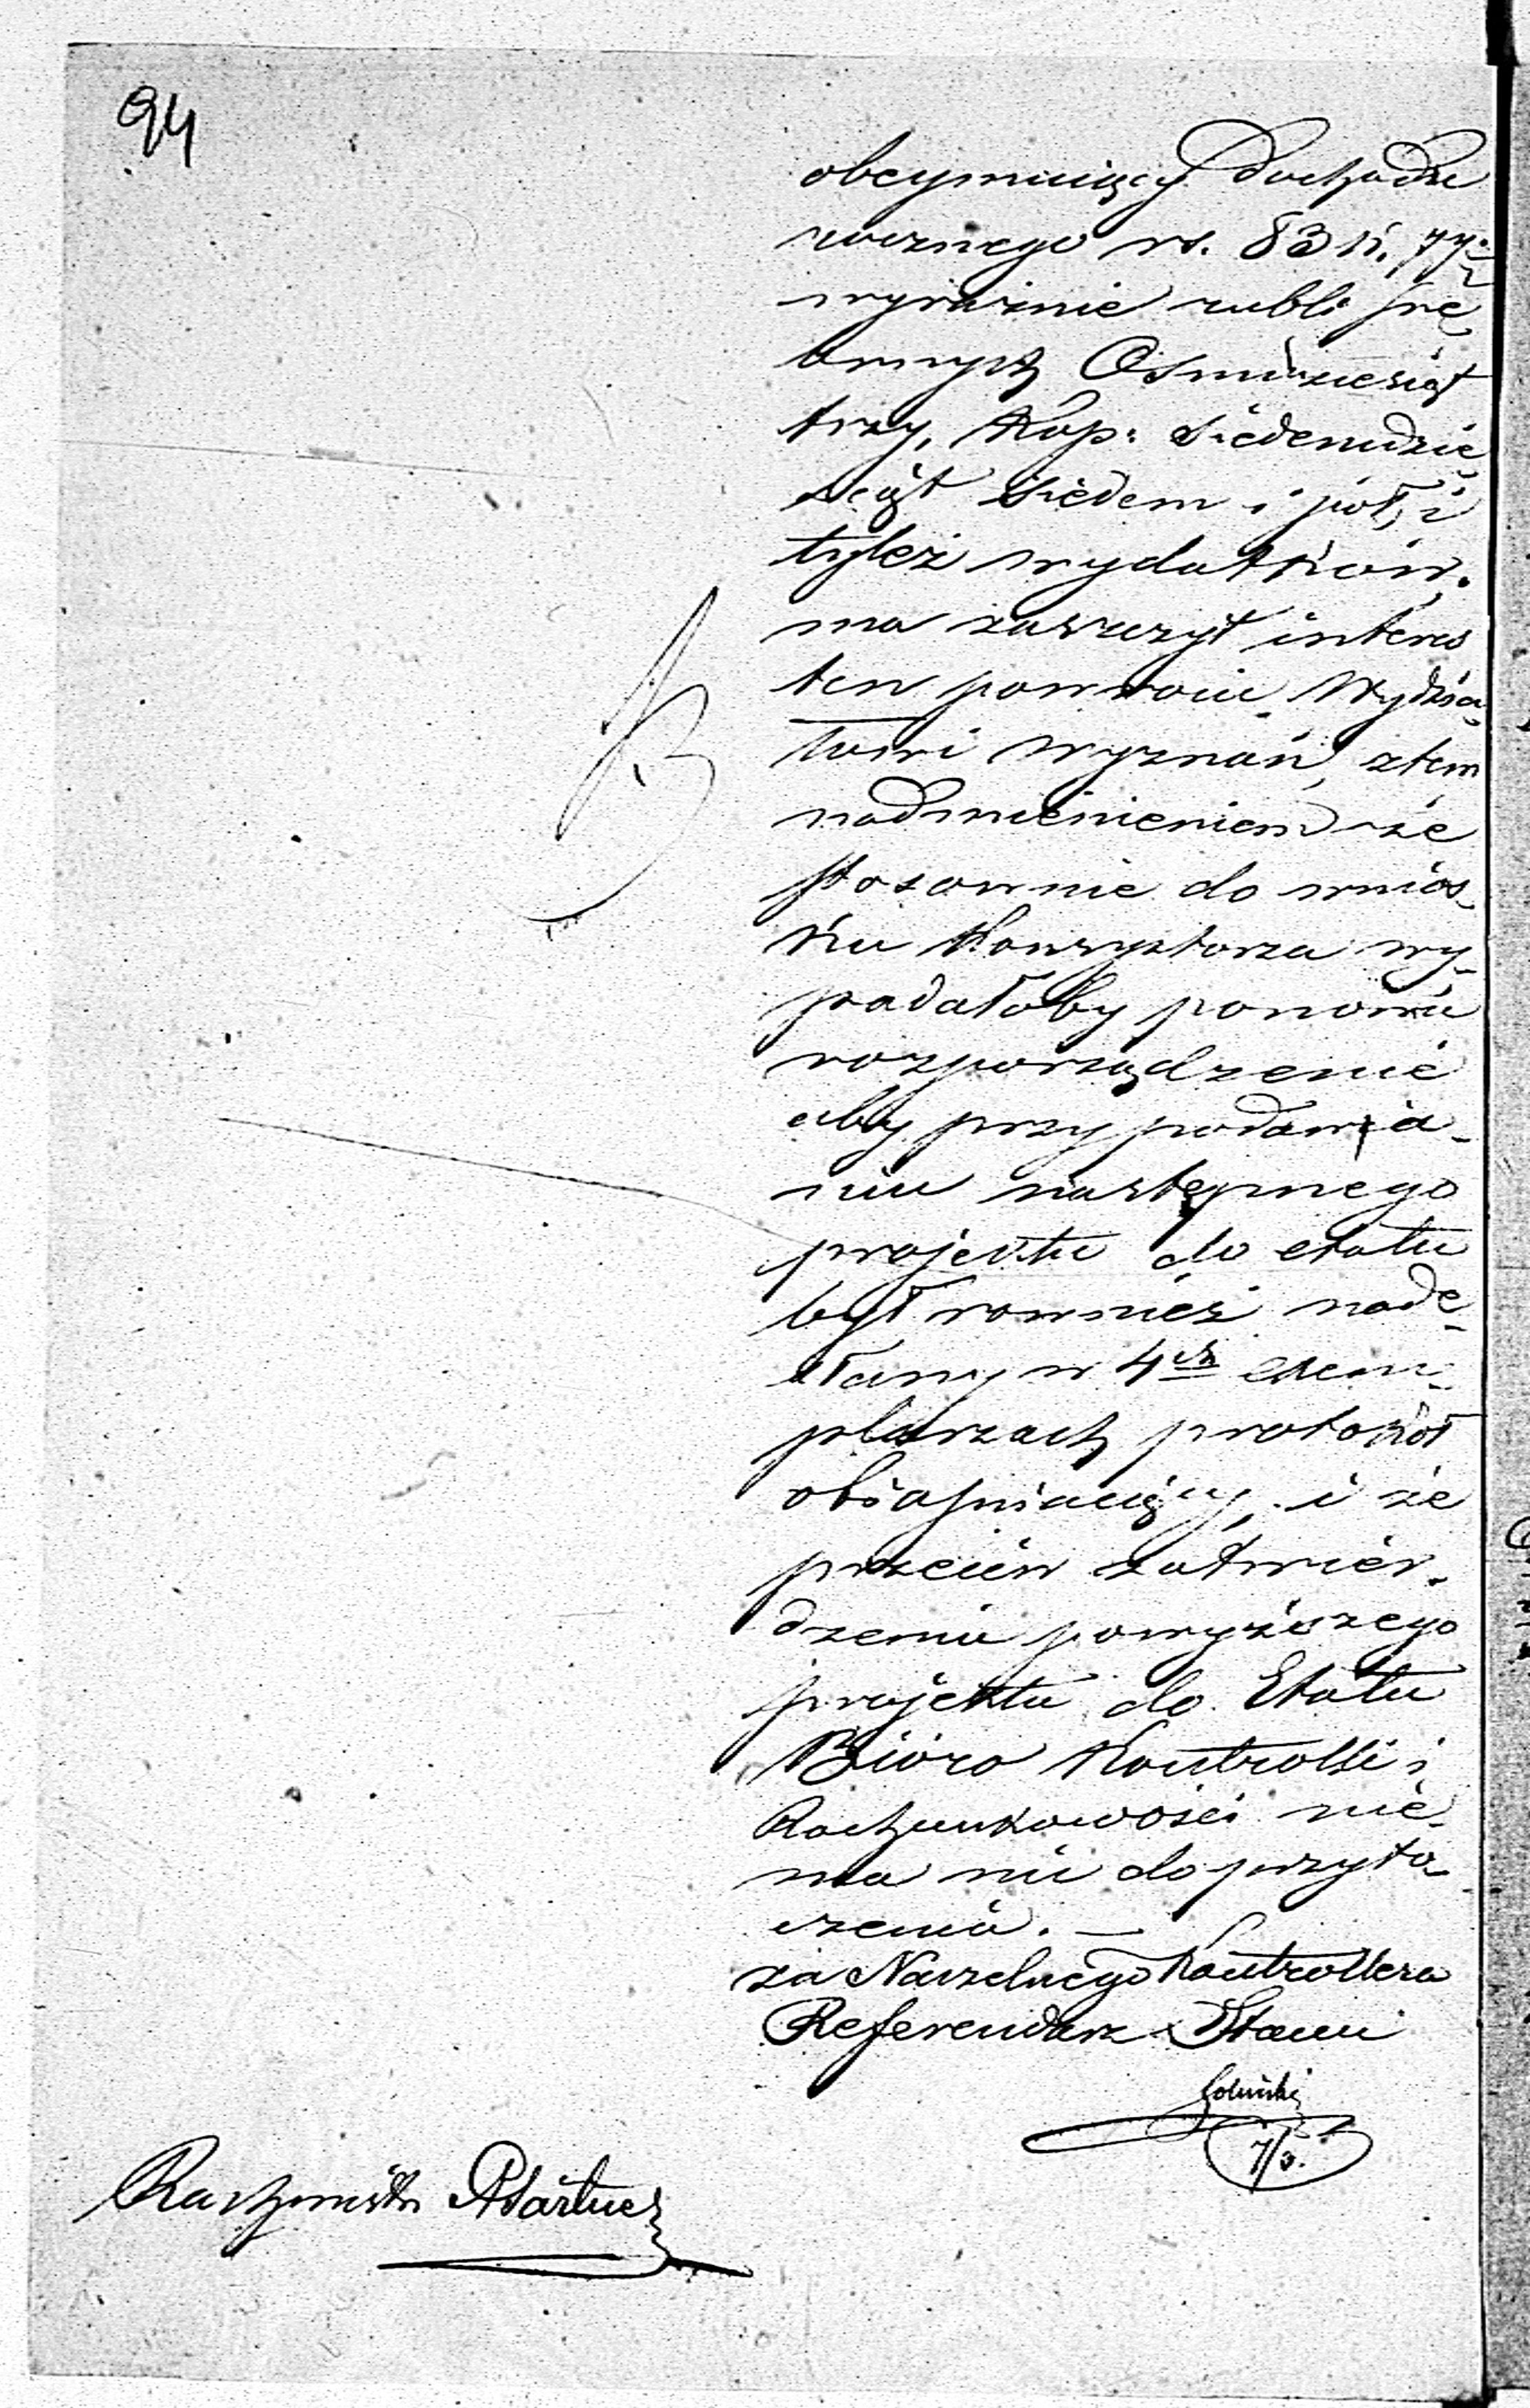 94
obeymuiący Dochodu
rocznego rs. 83 k. 77½
wyraźnie rubli sre
brnych Ośmdziesiąt
trzy, Kop: siedemdzie
siąt siedem i pół, i
tyleż wydatków.
ma zaszczyt interes
ten powrócić Wydzia
łowi Wyznań, z tem
nadmienieniem że
stosownie do wnios
ku Konsystorza wy
padałoby ponowić
rozporządzenie
aby przy podawia
niu następnego
projektu do etatu
był rownież nade
słany w 4ch exem
plarzach protokół
obiaśniaiący, i że
przeciw zatwier
dzeniu powyższego
projektu do Etatu
Bióro Kontrolli i
Rachunkowości nie
ma nic do przyto
czenia. —
za Naczelnego Kontrollera
Referendarz Stanu
7/5.
Rachmistrz